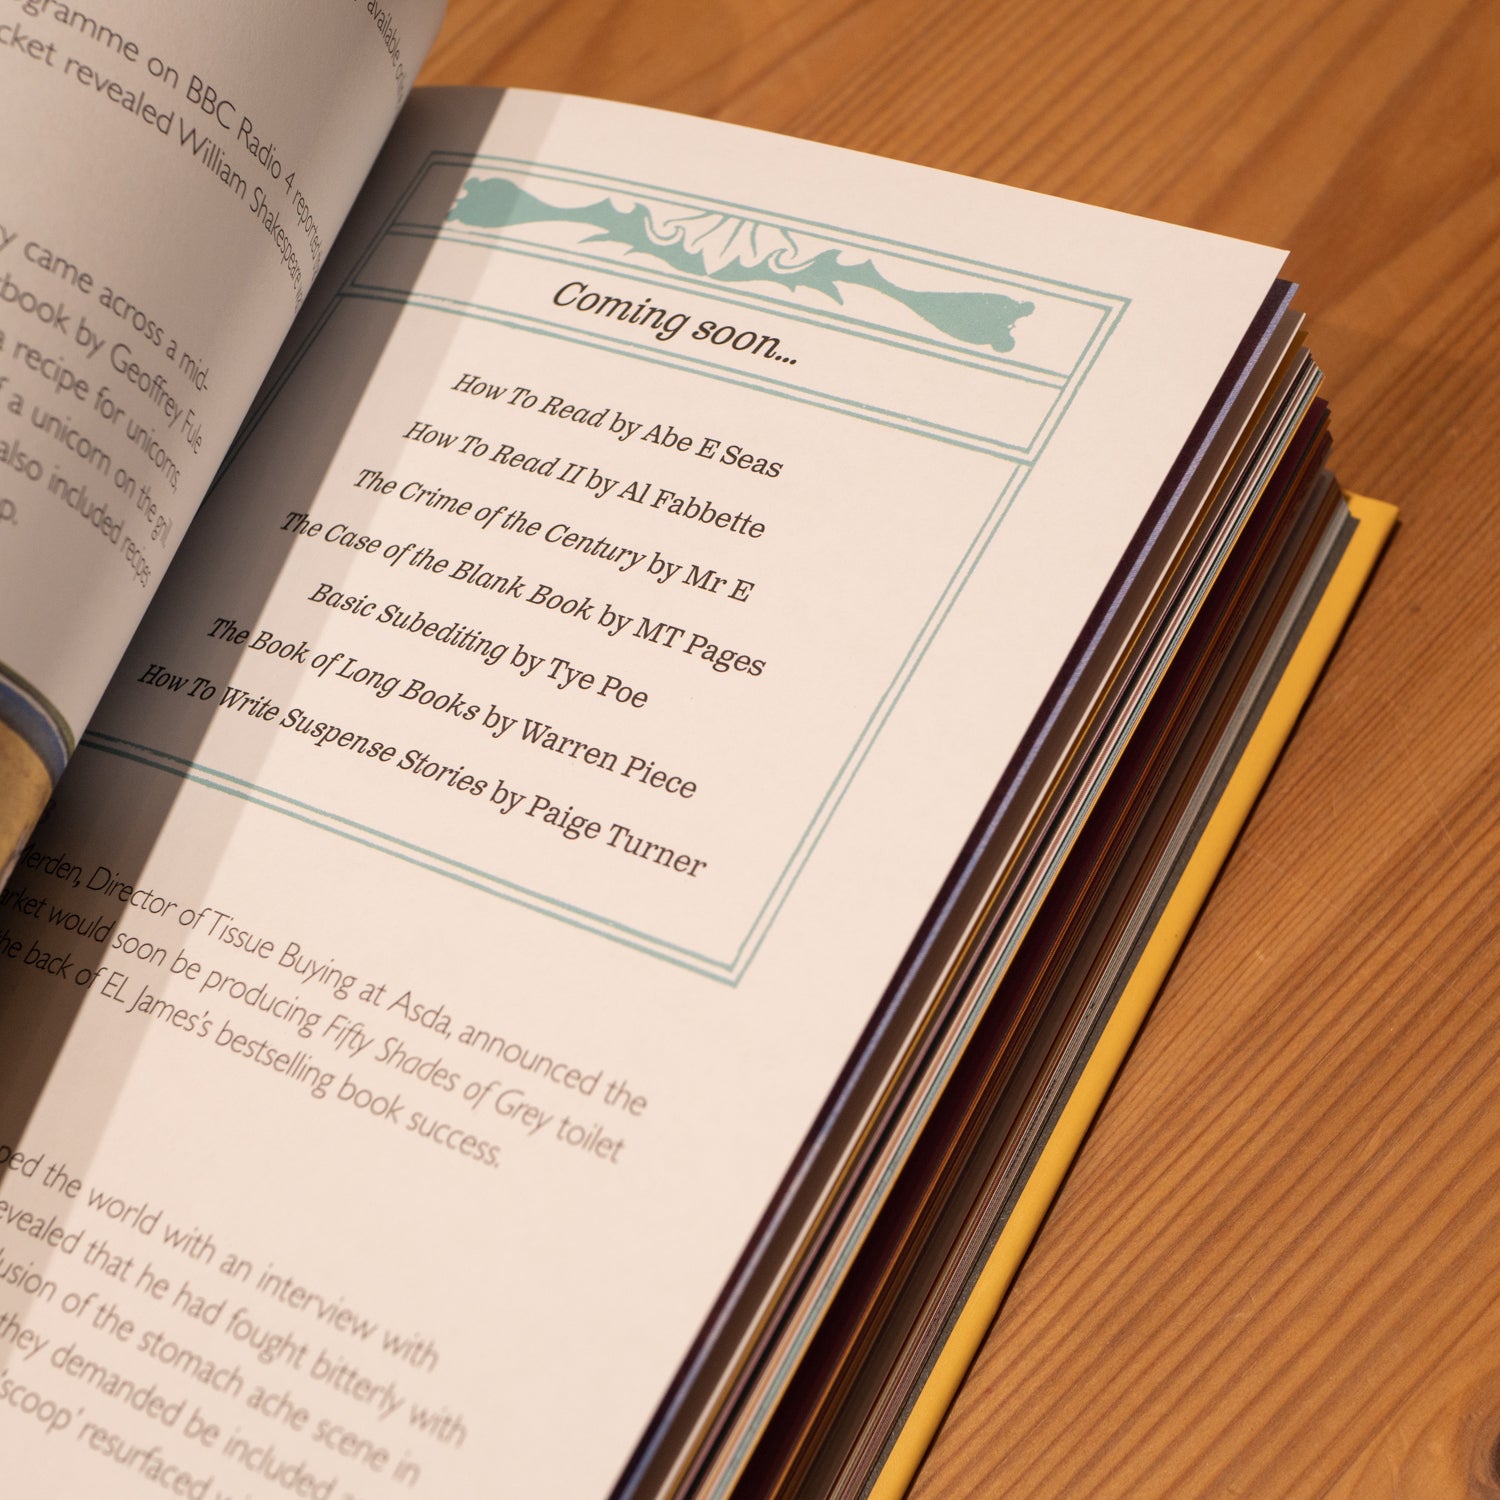 ogramme on BBC Radio 4 reported
cket revealed William Shakespeare
available
y came across a mid-
book by Geoffrey Fule
a recipe for unicorns,
f a unicorn on the grill,
also included recipes
p.
Coming soon...
How To Read by Abe E Seas
How To Read II by Al Fabbette
The Crime of the Century by Mr E
The Case of the Blank Book by MT Pages
Basic Subediting by Tye Poe
The Book of Long Books by Warren Piece
How To Write Suspense Stories by Paige Turner
Merden, Director of Tissue Buying at Asda, announced the
arket would soon be producing Fifty Shades of Grey toilet
he back of EL James's bestselling book success.
ped the world with an interview with
evealed that he had fought bitterly with
usion of the stomach ache scene in
they demanded be included
'scoop' resurfaced